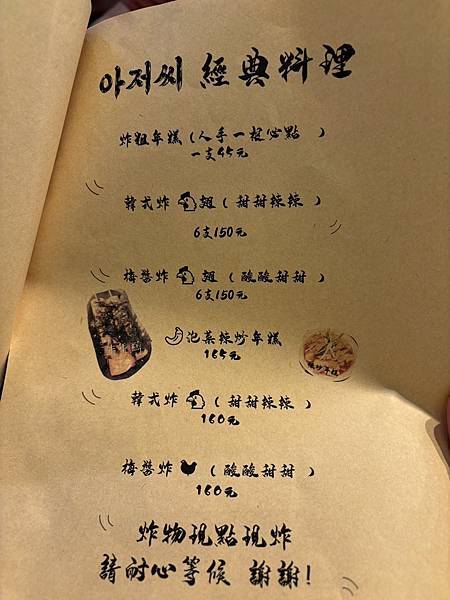 아저씨 經典料理
炸粗年糕(人手一根必點 )
一支45元
韓式炸 翅 ( 甜甜辣辣 )
6支150元
梅醬炸 翅 ( 酸酸甜甜 )
6支150元
泡菜辣炒年糕
165元
韓式炸 ( 甜甜辣辣 )
160元
梅醬炸 ( 酸酸甜甜 )
160元
炸物現點現炸
請耐心等候 謝謝!